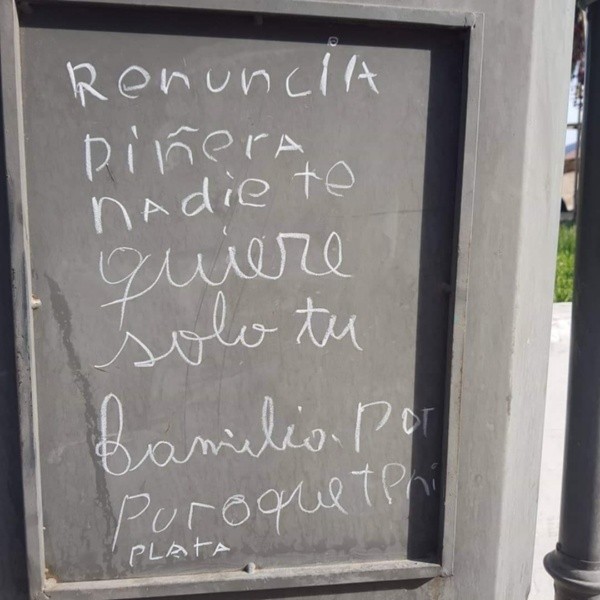 Renuncia
piñera
nadie te
quiere
solo tu
familia. Por
puroque teni
PLATA